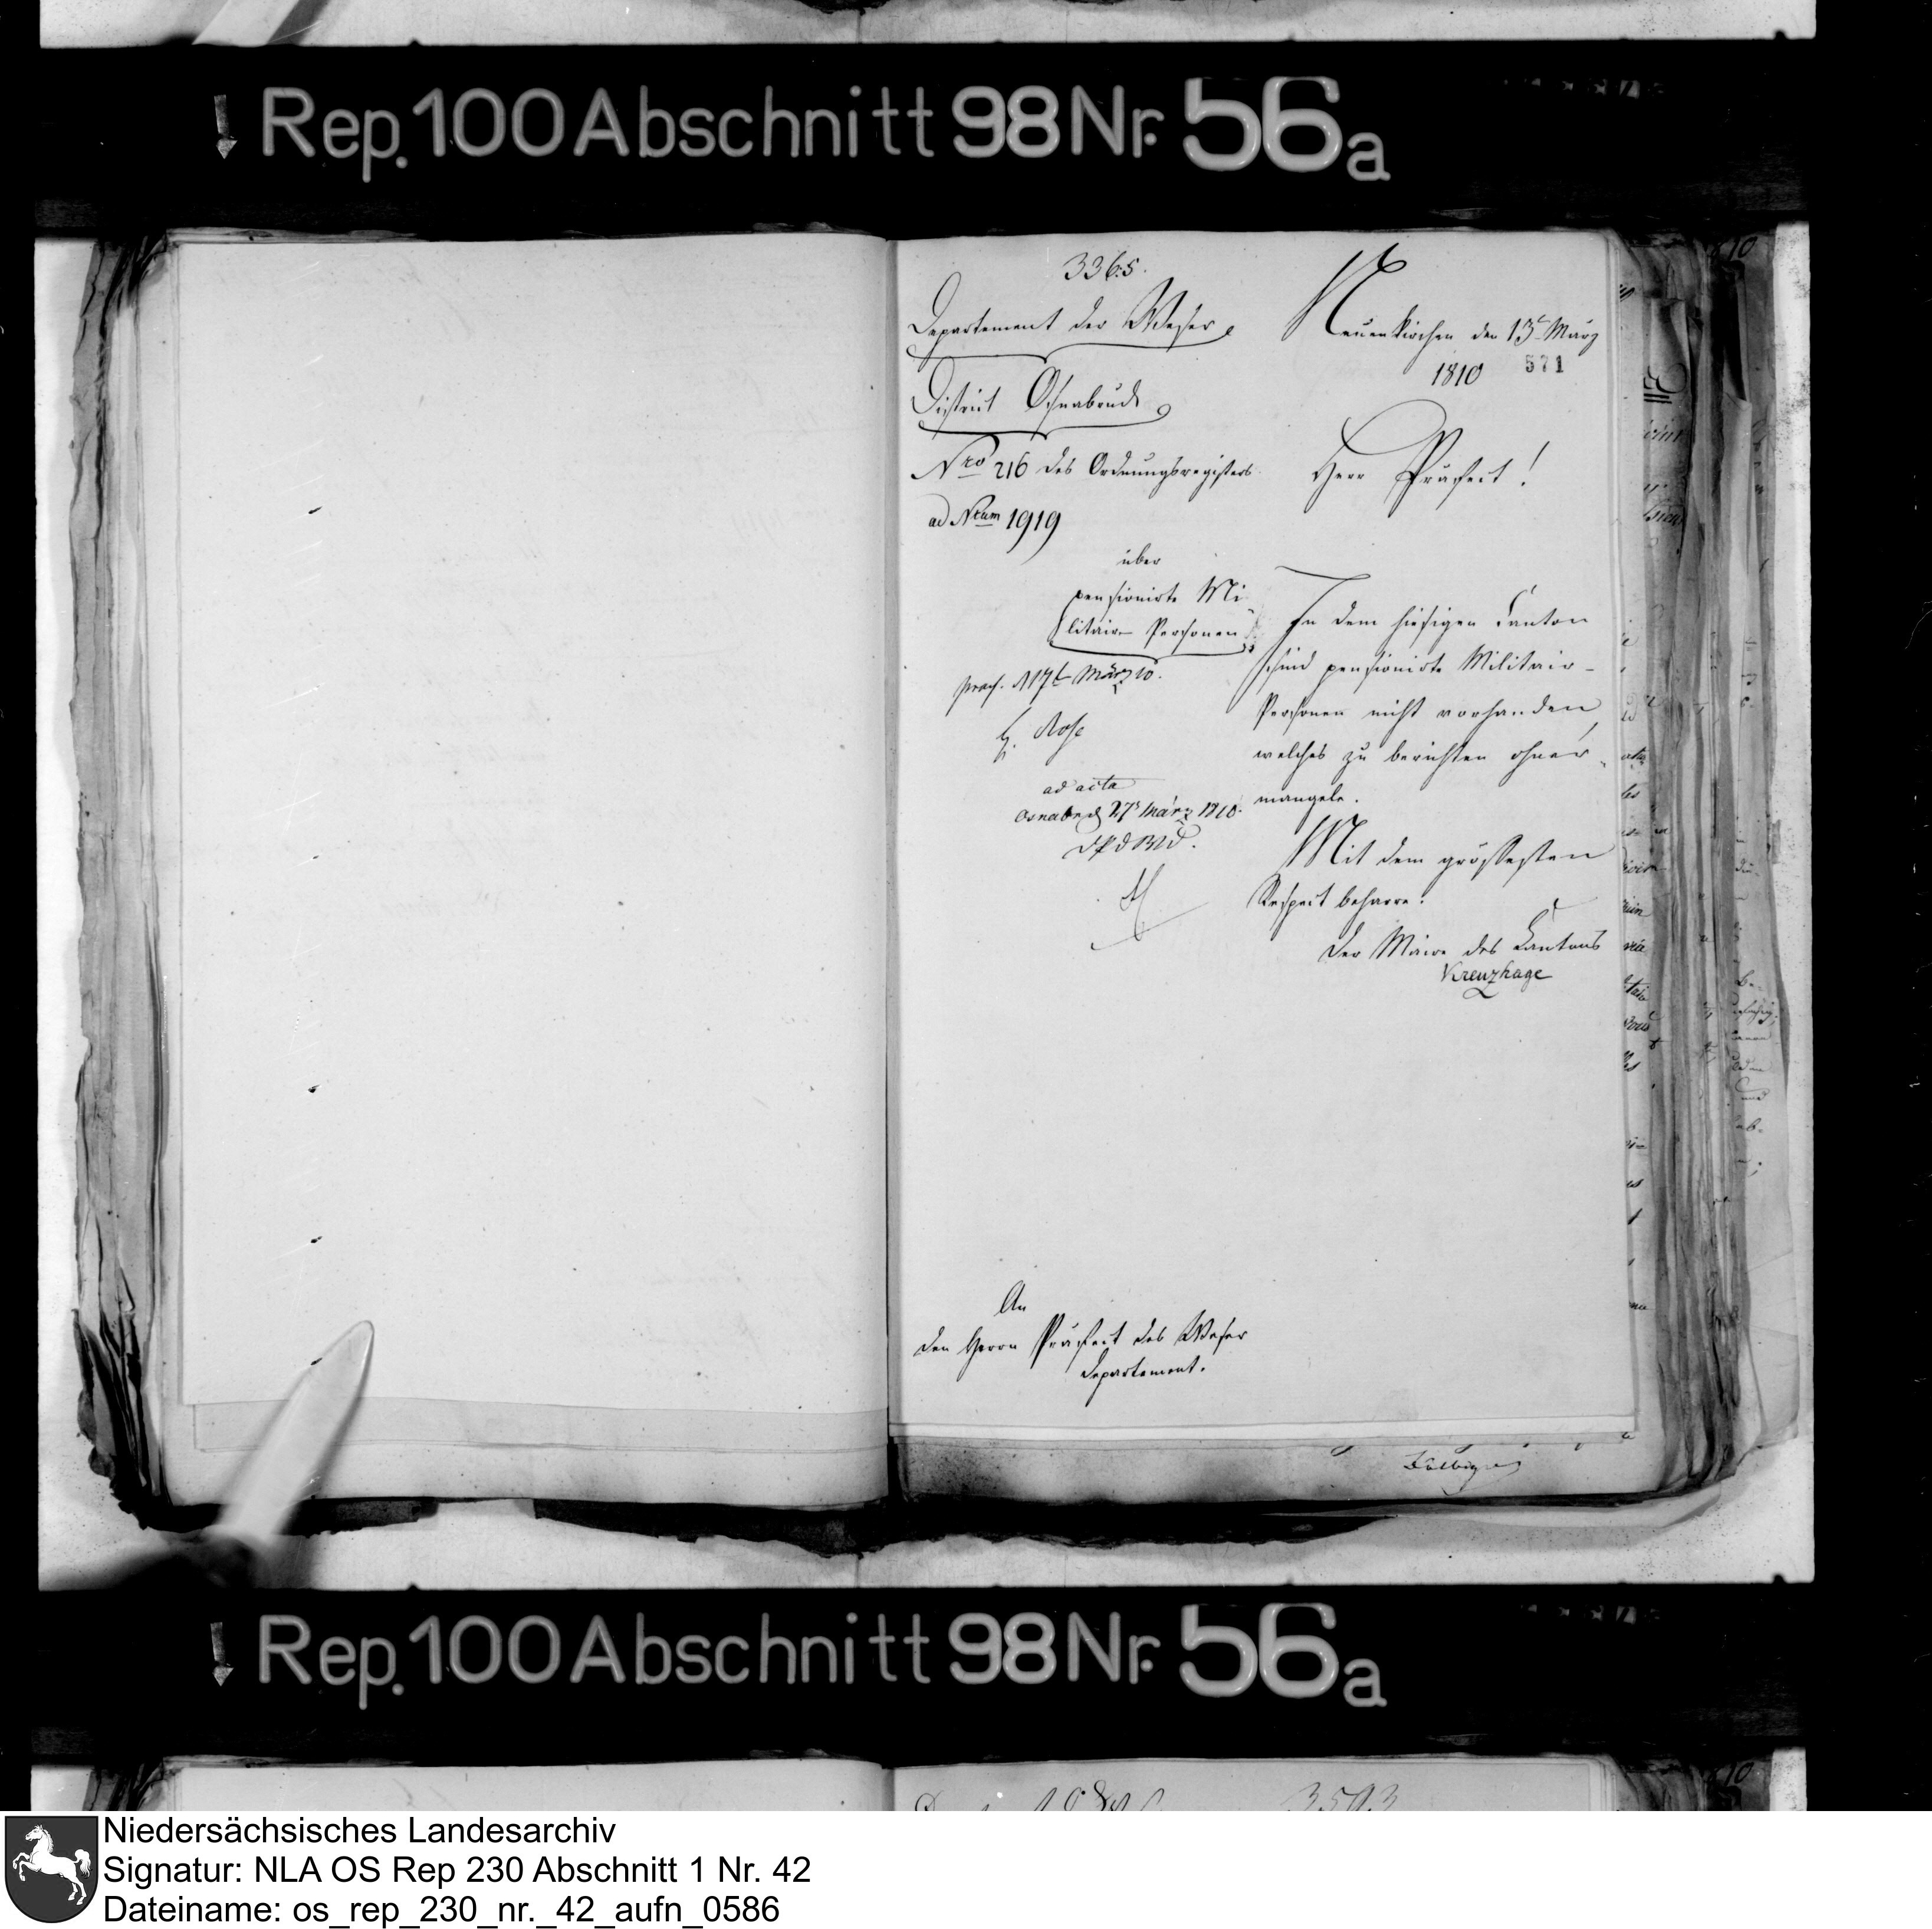 Rep. 100 Abschnitt 98 Nr. 56a
3365.
Departement der Weser
District Osnabrück
Nro 216 des Ordnungsregisters
ad Nrum 1919
über
pensionirte Mi
litair Personen
praes. d 17t März 10.
Rose
ad acta
Osnabrück 27 März 1810.
Neuenkirchen den 13t März
1810
571
Herr Präfect!
In dem hiesigen Canton
sind pensionirte Militair-
Personen nicht vorhanden,
welches zu berichten ohner-
mangele.
Mit dem grössesten
Respect beharre.
Der Maire des Cantons
Kreuzhage
An
den Herrn Präfect des Weser
Departement.
Rep. 100 Abschnitt 98 Nr. 56a
Niedersächsisches Landesarchiv
Signatur: NLA OS Rep 230 Abschnitt 1 Nr. 42
Dateiname: os_rep_230_nr._42_aufn_0586